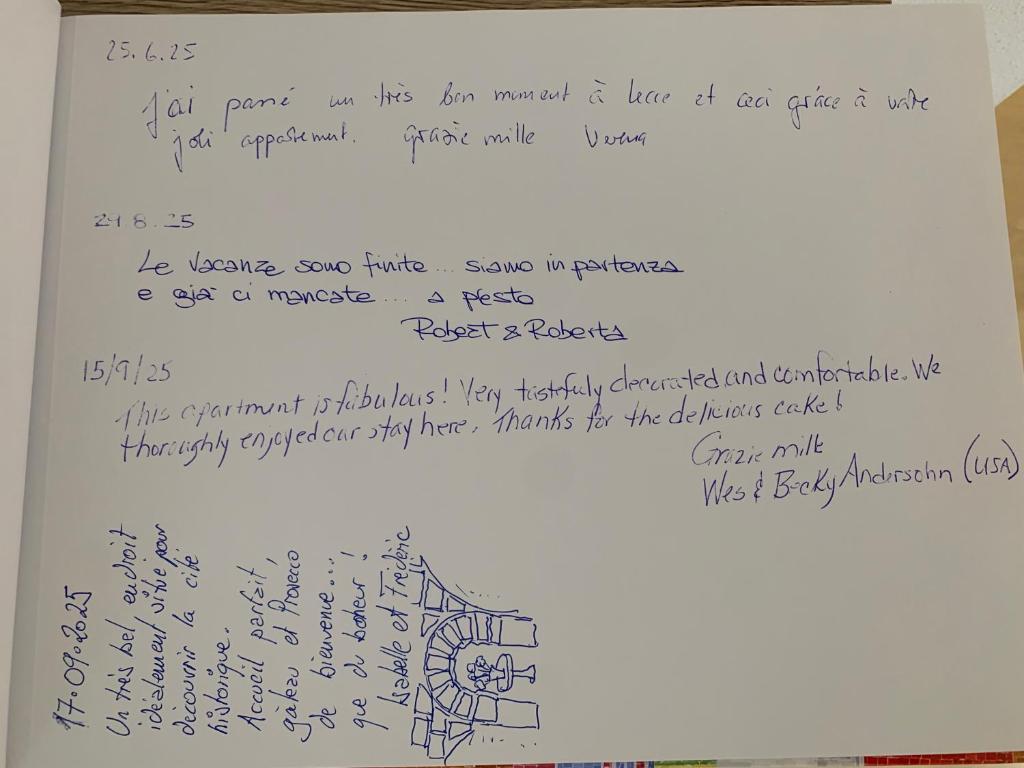 25.6.25
J'ai passé un très bon moment à Lecce et ceci grâce à votre
joli appartement. Grazie mille Verena
29.8.25
Le vacanze sono finite... siamo in partenza
e già ci mancate... a presto
Robert & Roberta
15/9/25
This apartment is fabulous! Very tastefuly decorated and comfortable. We
thoroughly enjoyed our stay here. Thanks for the delicious cake!
Grazie mille
Wes & Becky Andersohn (USA)
17.09.2025
Un très bel endroit
idéalement situé pour
découvrir la cité
historique.
Accueil parfait,
gâteau et Prosecco
de bienvenue...
que du bonheur!
Isabelle et Frédéric